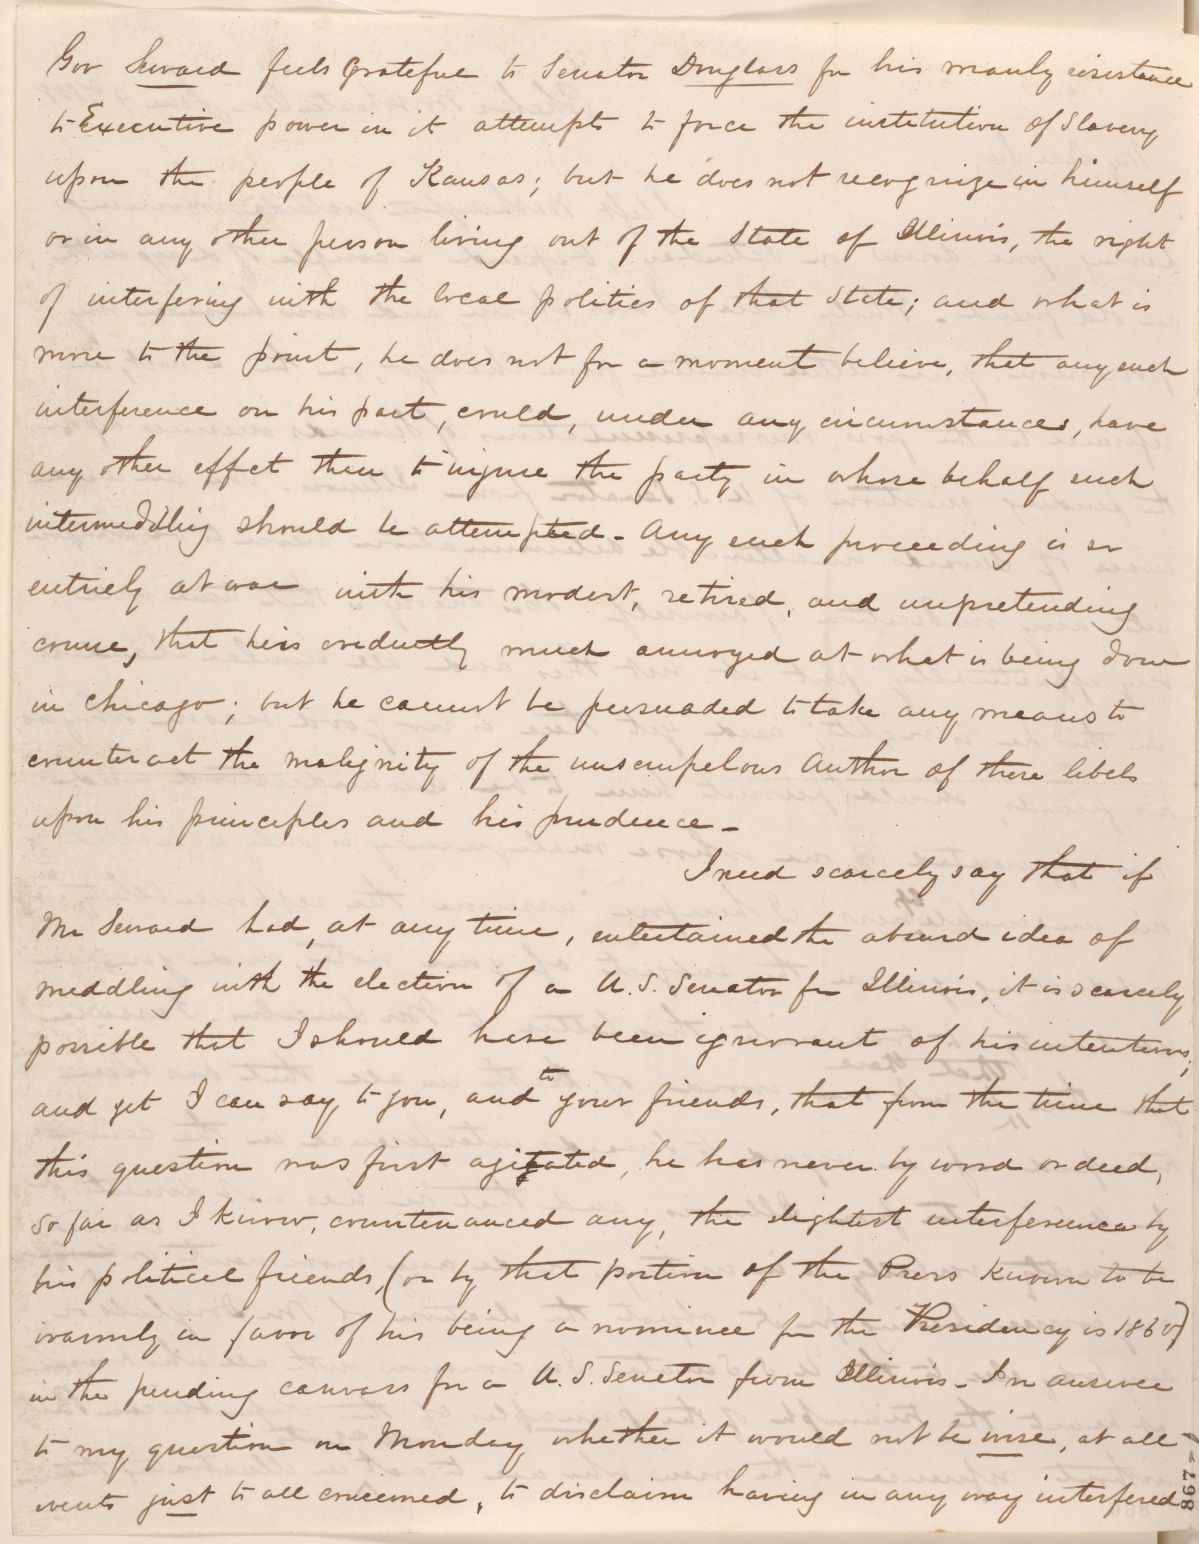 Gov Seward feels grateful to Senator Douglass for his manly resistance
to Executive power in it attempts to force the institution of Slavery
upon the people of Kansas; but he does not recognize in himself
or in any other person living out of the State of Illinois, the right
of interfering with the local politics of that State; and what is
more to the point, he does not for a moment believe, that any such
interference on his part, could, under any circumstances, have
any other effect then to injure the party in whose behalf such
intermeddling should be attempted - Any such proceeding is so
entirely at war with his modest, retired, and unpretending
course, that he is evidently much annoyed at what is being done
in Chicago; but he cannot be persuaded to take any means to
counteract the malignity of the unscrupelous Author of these libels
upon his principles and his prudence -
I need scarcely say that if
Mr Seward had, at any time, entertained the absurd idea of
meddling with the election of a U.S. Senator for Illinois, it is scarcely
possible that I should have been ignorant of his intentions;
and yet I can say to you, and to your friends, that from the time that
this question was first agitated, he has never by word or deed,
so far as I know, countenanced any, the slightest interference by
his political friends, (or by that portion of the Press known to be
warmly in favor of his being a nominee for the Presidency is 1860)
in the pending canvass for a U.S. Senator from Illinois - In answer
to my question on Monday whether it would not be wise, at all
events just to all concerned, to disclaim having in any way interfered
867